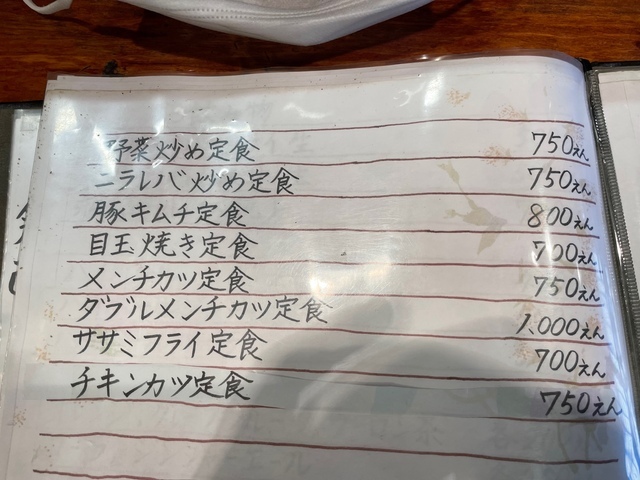 野菜炒め定食 750えん
ニラレバ炒め定食 750えん
豚キムチ定食 800えん
目玉焼き定食 700えん
メンチカツ定食 750えん
ダブルメンチカツ定食 1,000えん
ササミフライ定食 700えん
チキンカツ定食 750えん